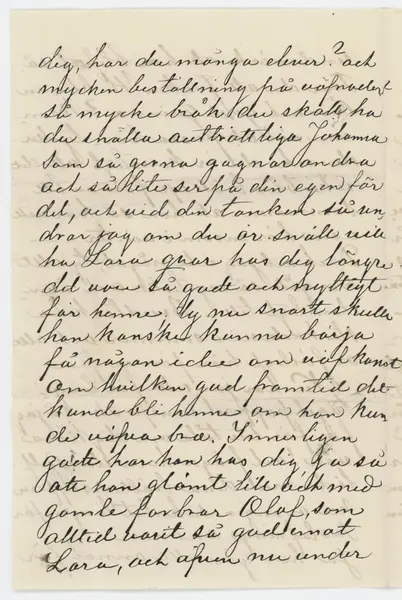 dig, har du många elever? och
mycken beställning på väfnader
så mycke bråk du skall ha
du snälla outtröttliga Johanna
som så gerna gagnar andra
och så lite ser på din egen för
del, och vid den tanken så un
drar jag om du är snäll vill
ha Lara qvar hos dig längre
det vore så godt och nyttigt
för henne, ty nu snart skulle
hon kanske kunna börja
få någon idee om väf konst
om hvilken god framtid det
kunde bli henne om hon kun
de väfva bra. Innerligen
godt har hon hos dig, ja så
att hon glömt lill och med
gamle farbror Olof, som
alltid varit så god emot
Lara, och äfven nu under